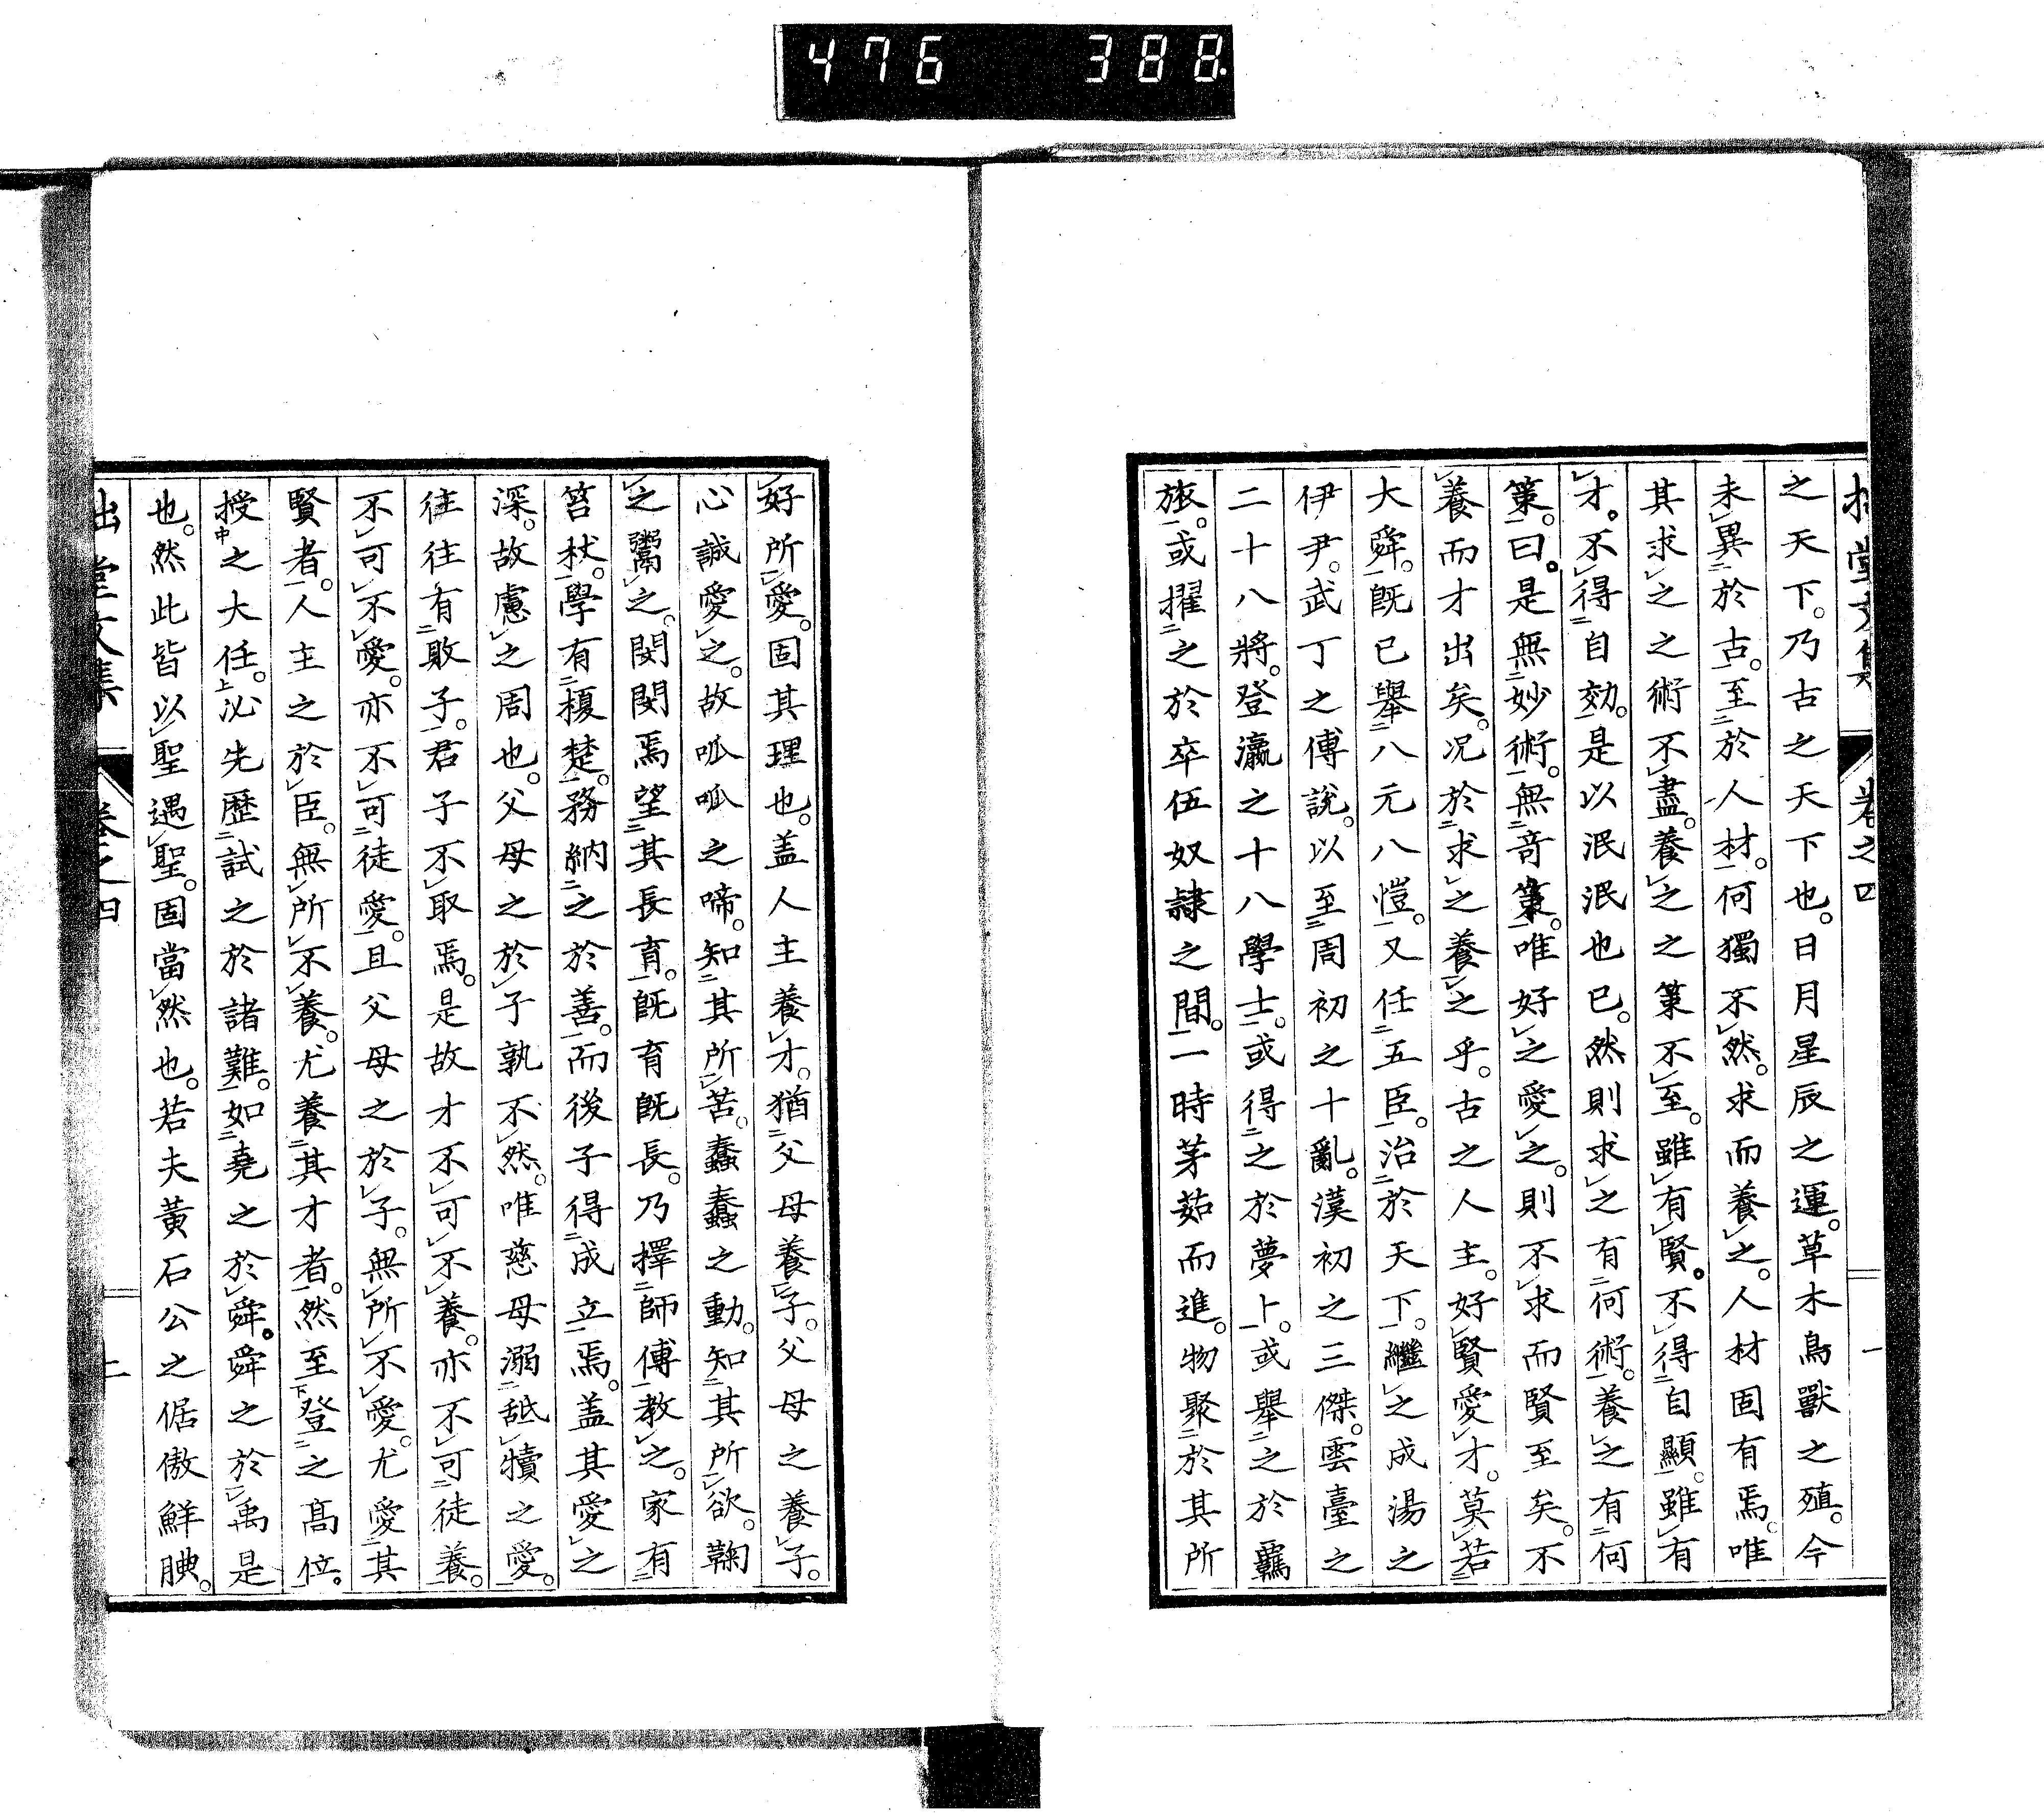 476 388.
之天下。乃古之天下也。日月星辰之運。草木鳥獸之殖。今
未異於古。至於人材。何獨不然。求而養之。人材固有焉。唯
其求之之術不盡。養之之策不至。雖有賢。不得自顯。雖有
才。不得自効。是以泯泯也已。然則求之有何術。養之有何
策。曰。是無妙術。無奇策。唯好之愛之。則不求而賢至矣。不
養而才出矣。况於求之養之乎。古之人主。好賢愛才。莫若
大舜。既已舉八元八愷。又任五臣。治於天下。繼之成湯之
伊尹。武丁之傅說。以至周初之十亂。漢初之三傑。雲臺之
二十八將。登瀛之十八學士。或得之於夢卜。或舉之於羈
旅。或擢之於卒伍奴隸之間。一時茅茹而進。物聚於其所
好所愛。固其理也。盖人主養才。猶父母養子。父母之養子。
心誠愛之。故呱呱之啼。知其所苦。蠢蠢之動。知其所欲。鞠
之鬻之。閔閔焉望其長育。既育既長。乃擇師傅教之。家有
笞杖。學有榎楚。務納之於善。而後子得成立焉。盖其愛之
深。故慮之周也。父母之於子孰不然。唯慈母溺舐犢之愛。
往往有敗子。君子不取焉。是故才不可不養。亦不可徒養。
不可不愛。亦不可徒愛。且父母之於子。無所不愛。尤愛其
賢者。人主之於臣。無所不養。尤養其才者。然至登之高位。
授之大任。必先歷試之於諸難。如堯之於舜。舜之於禹是
也。然此皆以聖遇聖。固當然也。若夫黃石公之倨傲鮮腆。
拙堂文集 卷之四 二